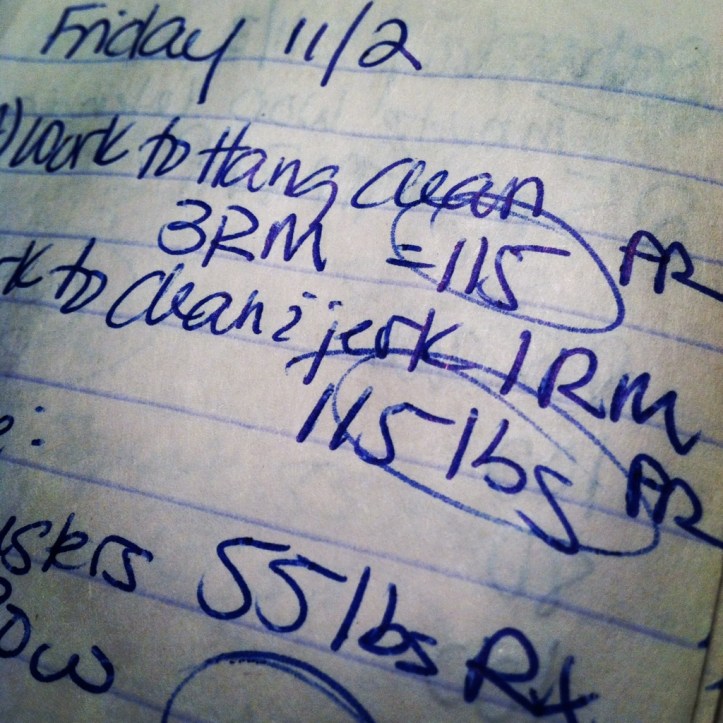 Friday 11/2
)work to Hang Clean
3RM = 115 PR
rk to Clean & jerk 1RM
115 lbs PR
e:
uskers 55 lbs Rx
Row